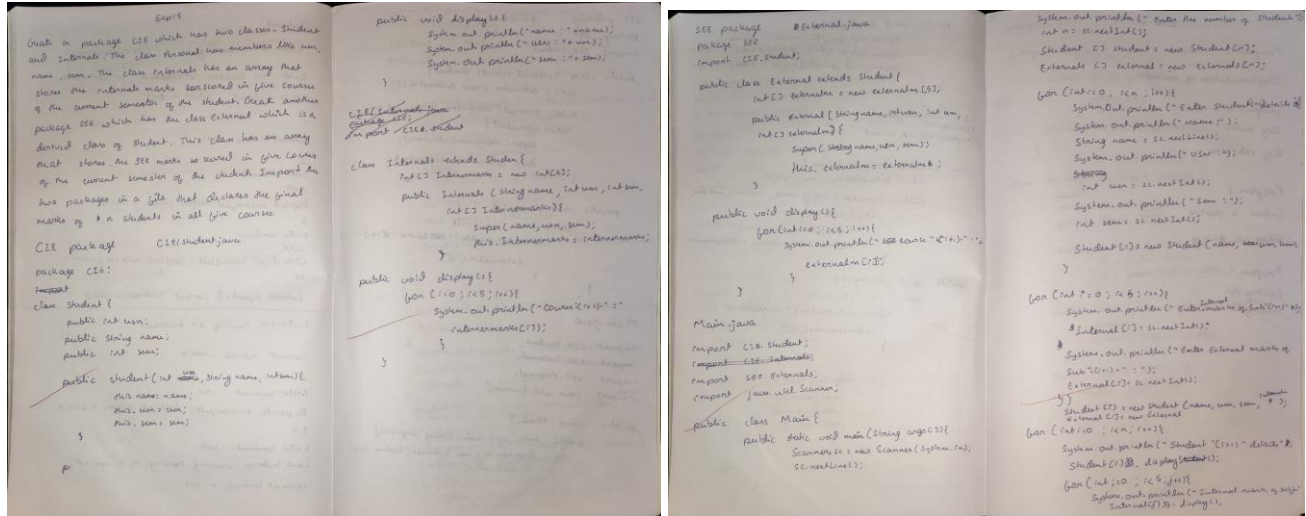 Exp 19
Create a package CIE which has two classes - Student
and Internals. The class Personal has members like usn,
name, sem. The class internals has an array that
stores the internals marks scored in five courses
of the current semester of the student. Create another
package SEE which has the class External which is a
derived class of Student. This class has an array
that stores the SEE marks scored in five courses
of the current semester of the student. Import the
two packages in a file that declares the final
marks of n students in all five courses
CIE package CIE/Student.java
package CIE;
import
class Student {
public int usn;
public String name;
public int sem;
public student (int usn, String name, int sem) {
this.name = name;
this.usn = usn;
this.sem = sem;
}
public void display () {
System.out.println("name : " + name);
System.out.println("usn : " + usn);
System.out.println("sem : " + sem);
}
CIE/Internals.java
package SEE;
import CIE.student
class Internals extends Studen {
int [] Internermarks = new int[5];
public Internals (String name, int usn, int sem,
int [] Internermarks) {
super (name, usn, sem);
this.Internermarks = internermarks;
}
public void display () {
for (i=0; i<5; i++) {
System.out.println("Course"(i+1)" :"
internermarks[i]);
}
}
SEE package External.java
pakage SEE
import CIE.Student;
public class External extends Student {
int [] externalm = new externalm [5];
public External (String name, int usn, int sem,
int [] externalm) {
super (String name, usn, sem);
this.externalm = externalm;
}
public void display () {
for (int i=0; i<5; i++) {
System.out.println("SEE course "(i+1)" :",
externalm [i]);
}
}
Main.java
import CIE.Student;
import CIE.Internals;
import SEE.Externals;
import java.util.Scanner;
public class Main {
public static void main (String args[]) {
Scanner sc = new Scanner (System.in);
sc.nextLine();
System.out.println("Enter the number of Students")
int n = sc.nextInt();
Student [] student = new Student [n];
Externals [] external = new Externals [n];
for (int i=0; i<n; i++) {
System.Out.println("Enter Student details
System.out.println("Name :");
String name = sc.nextLine();
System.out.println("USN :");
String
int usn = sc.nextInt();
System.out.println("Sem :");
int sem = sc.nextInt();
Student [i] = new Student (name, usn, sem);
}
for (int i=0; i<5; i++) {
System.out.println("Enter Internal marks of Sub"(i+1)"
Internal [i] = sc.nextInt();
System.out.println("Enter External marks of
Sub"(i+1)" : ");
External [i] = sc.nextInt();
} }
Student [i] = new Student (name, usn, sem,
external [i] = new External
for (int i=0; i<n; i++) {
System.out.println("Student "(i+1)" details"
Student [i].display();
for (int j=0; i<5; j++) {
System.out.println("Internal mark of
Internal [j].display();